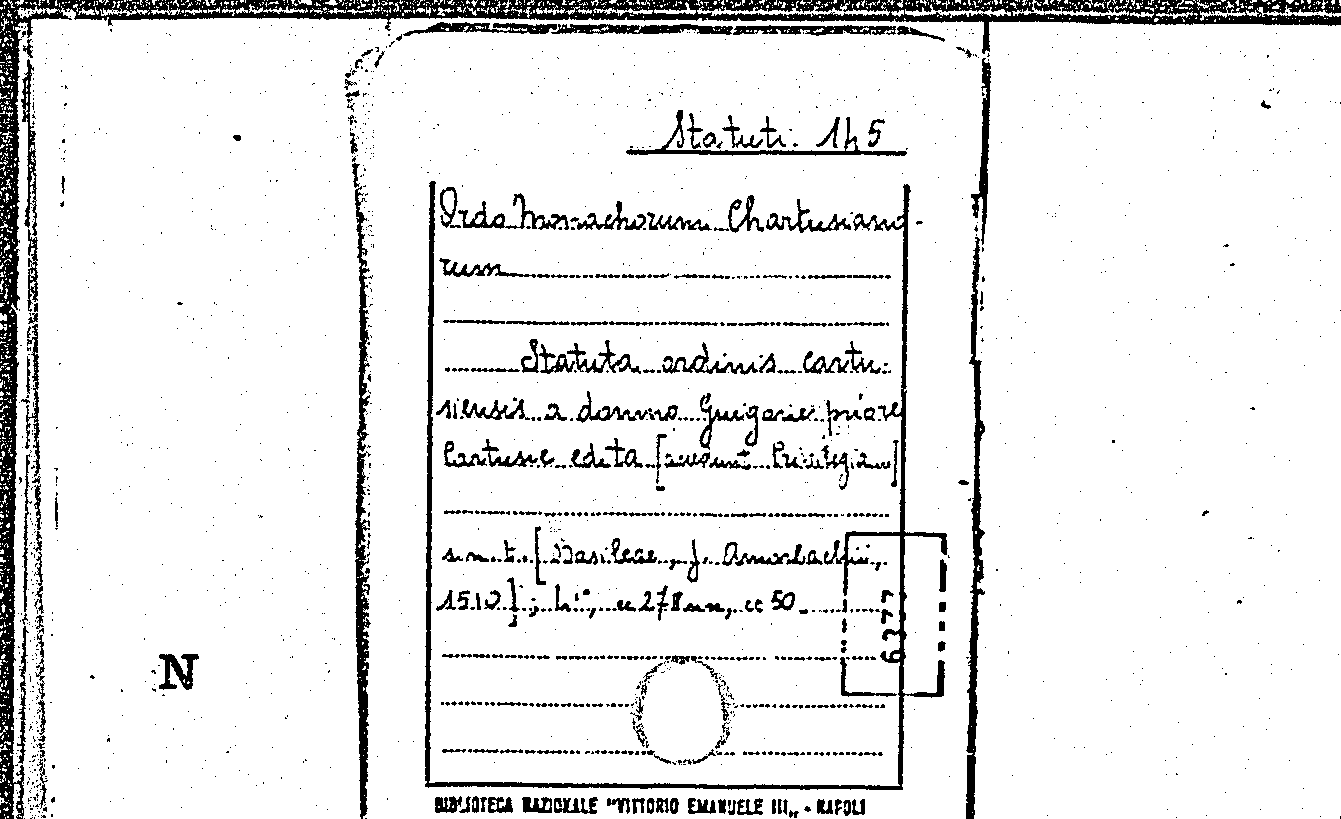 Statuti. 1h5
Ordo Monachorum Chartusiano-
rum
Statuta ordinis cartu-
siensis a domno Guigone priore
Cartusie edita [accedunt Privilegia]
s. n. t. [Basileae, J. Amorbachii,
1510]; h°, cc 278 nn, cc 50.
6377
N
BIBLIOTECA NAZIONALE "VITTORIO EMANUELE III„ - NAPOLI